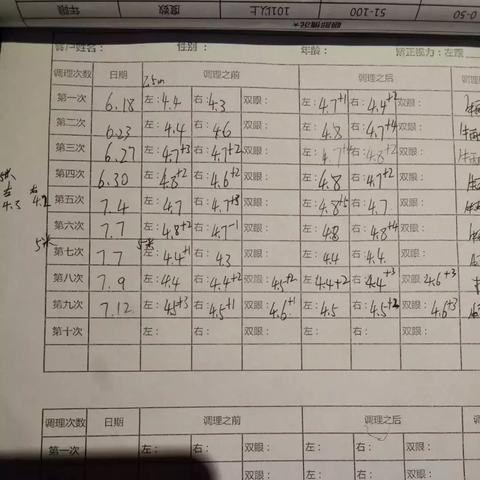 眼部情况★
0-50 51-100 101以上 度数 年限
客户姓名： 性别： 年龄： 矫正视力：左眼
2.5m
调理次数 日期 调理之前 调理之后
第一次 6.18 左：4.4 右：4.3 双眼： 左：4.7+1 右：4.4+2 双眼：
第二次 6.23 左：4.4 右：4.6 双眼： 左：4.8 右：4.7+4 双眼：
第三次 6.27 左：4.7+3 右：4.7+2 双眼： 左：4.7+4 右：4.8+2 双眼：
第四次 6.30 左：4.8+2 右：4.6+2 双眼： 左：4.8 右：4.7+2 双眼：
5米
左 右
4.3 4.2
第五次 7.4 左：4.7 右：4.7+3 双眼： 左：4.8+5 右：4.7 双眼：
第六次 7.7 左：4.8+2 右：4.7-1 双眼： 左：4.8 右：4.8+4 双眼：
5米 5米
第七次 7.7 左：4.4+1 右：4.3 双眼： 左：4.4 右：4.4 双眼：
第八次 7.9 左：4.4 右：4.4+2 双眼：4.5+2 左：4.4+2 右：4.4+3 双眼：4.6+3
第九次 7.12 左：4.5+3 右：4.5+1 双眼：4.6+1 左：4.5 右：4.5+2 双眼：4.6+3
第十次 左： 右： 双眼： 左： 右： 双眼：
调理次数 日期 调理之前 调理之后
第一次 左： 右： 双眼： 左： 右： 双眼：
双眼： 左： 右： 双眼：